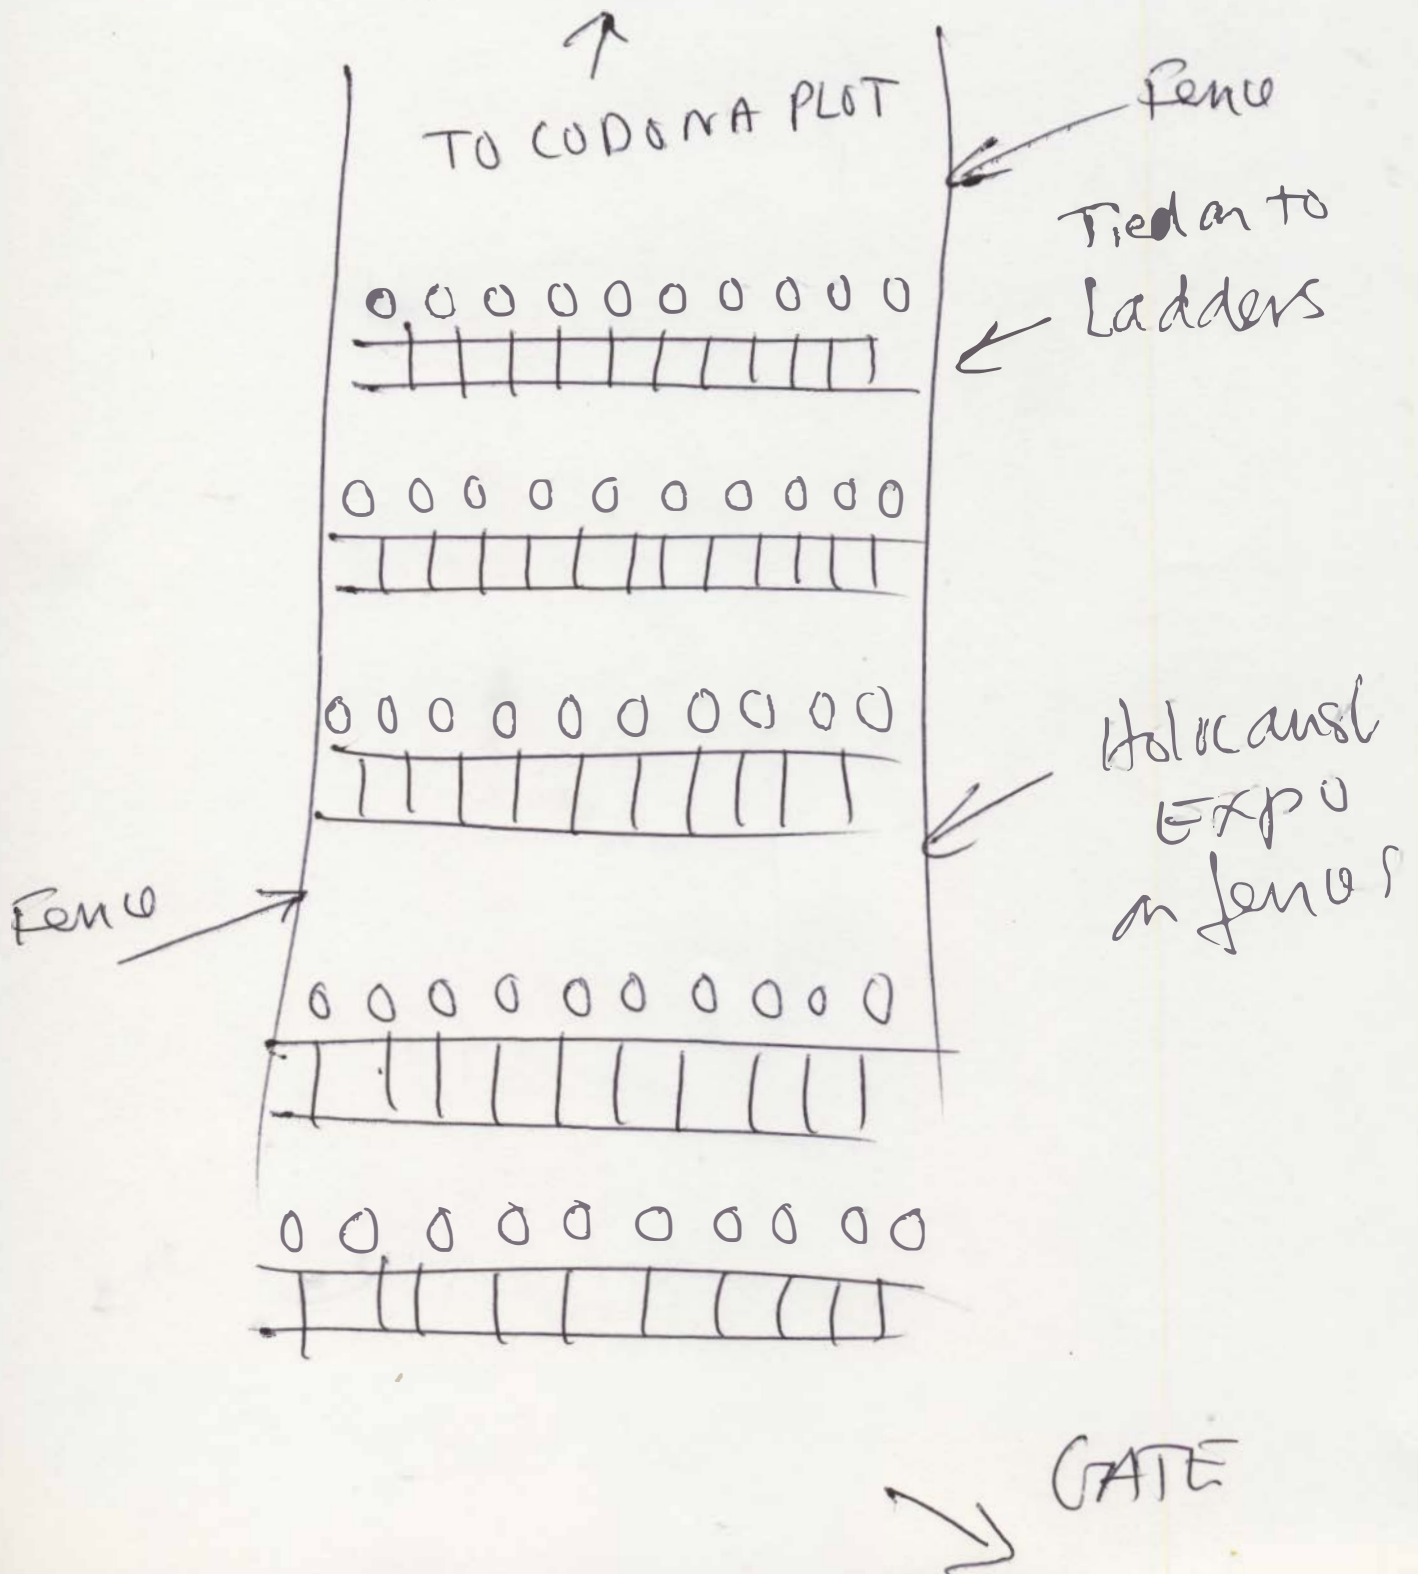 TO CODONA PLOT
Fence
Tied on to
Ladders
Holocaust
Expo
on fences
Fence
GATE